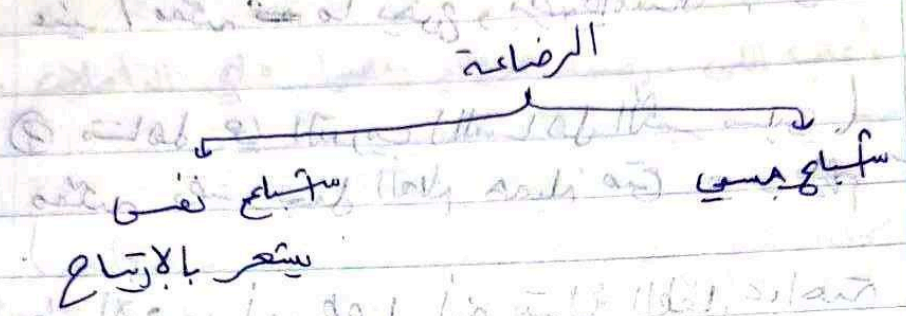 الرضاعة
إشباع جسمي
إشباع نفسي
يشعر بالارتياح